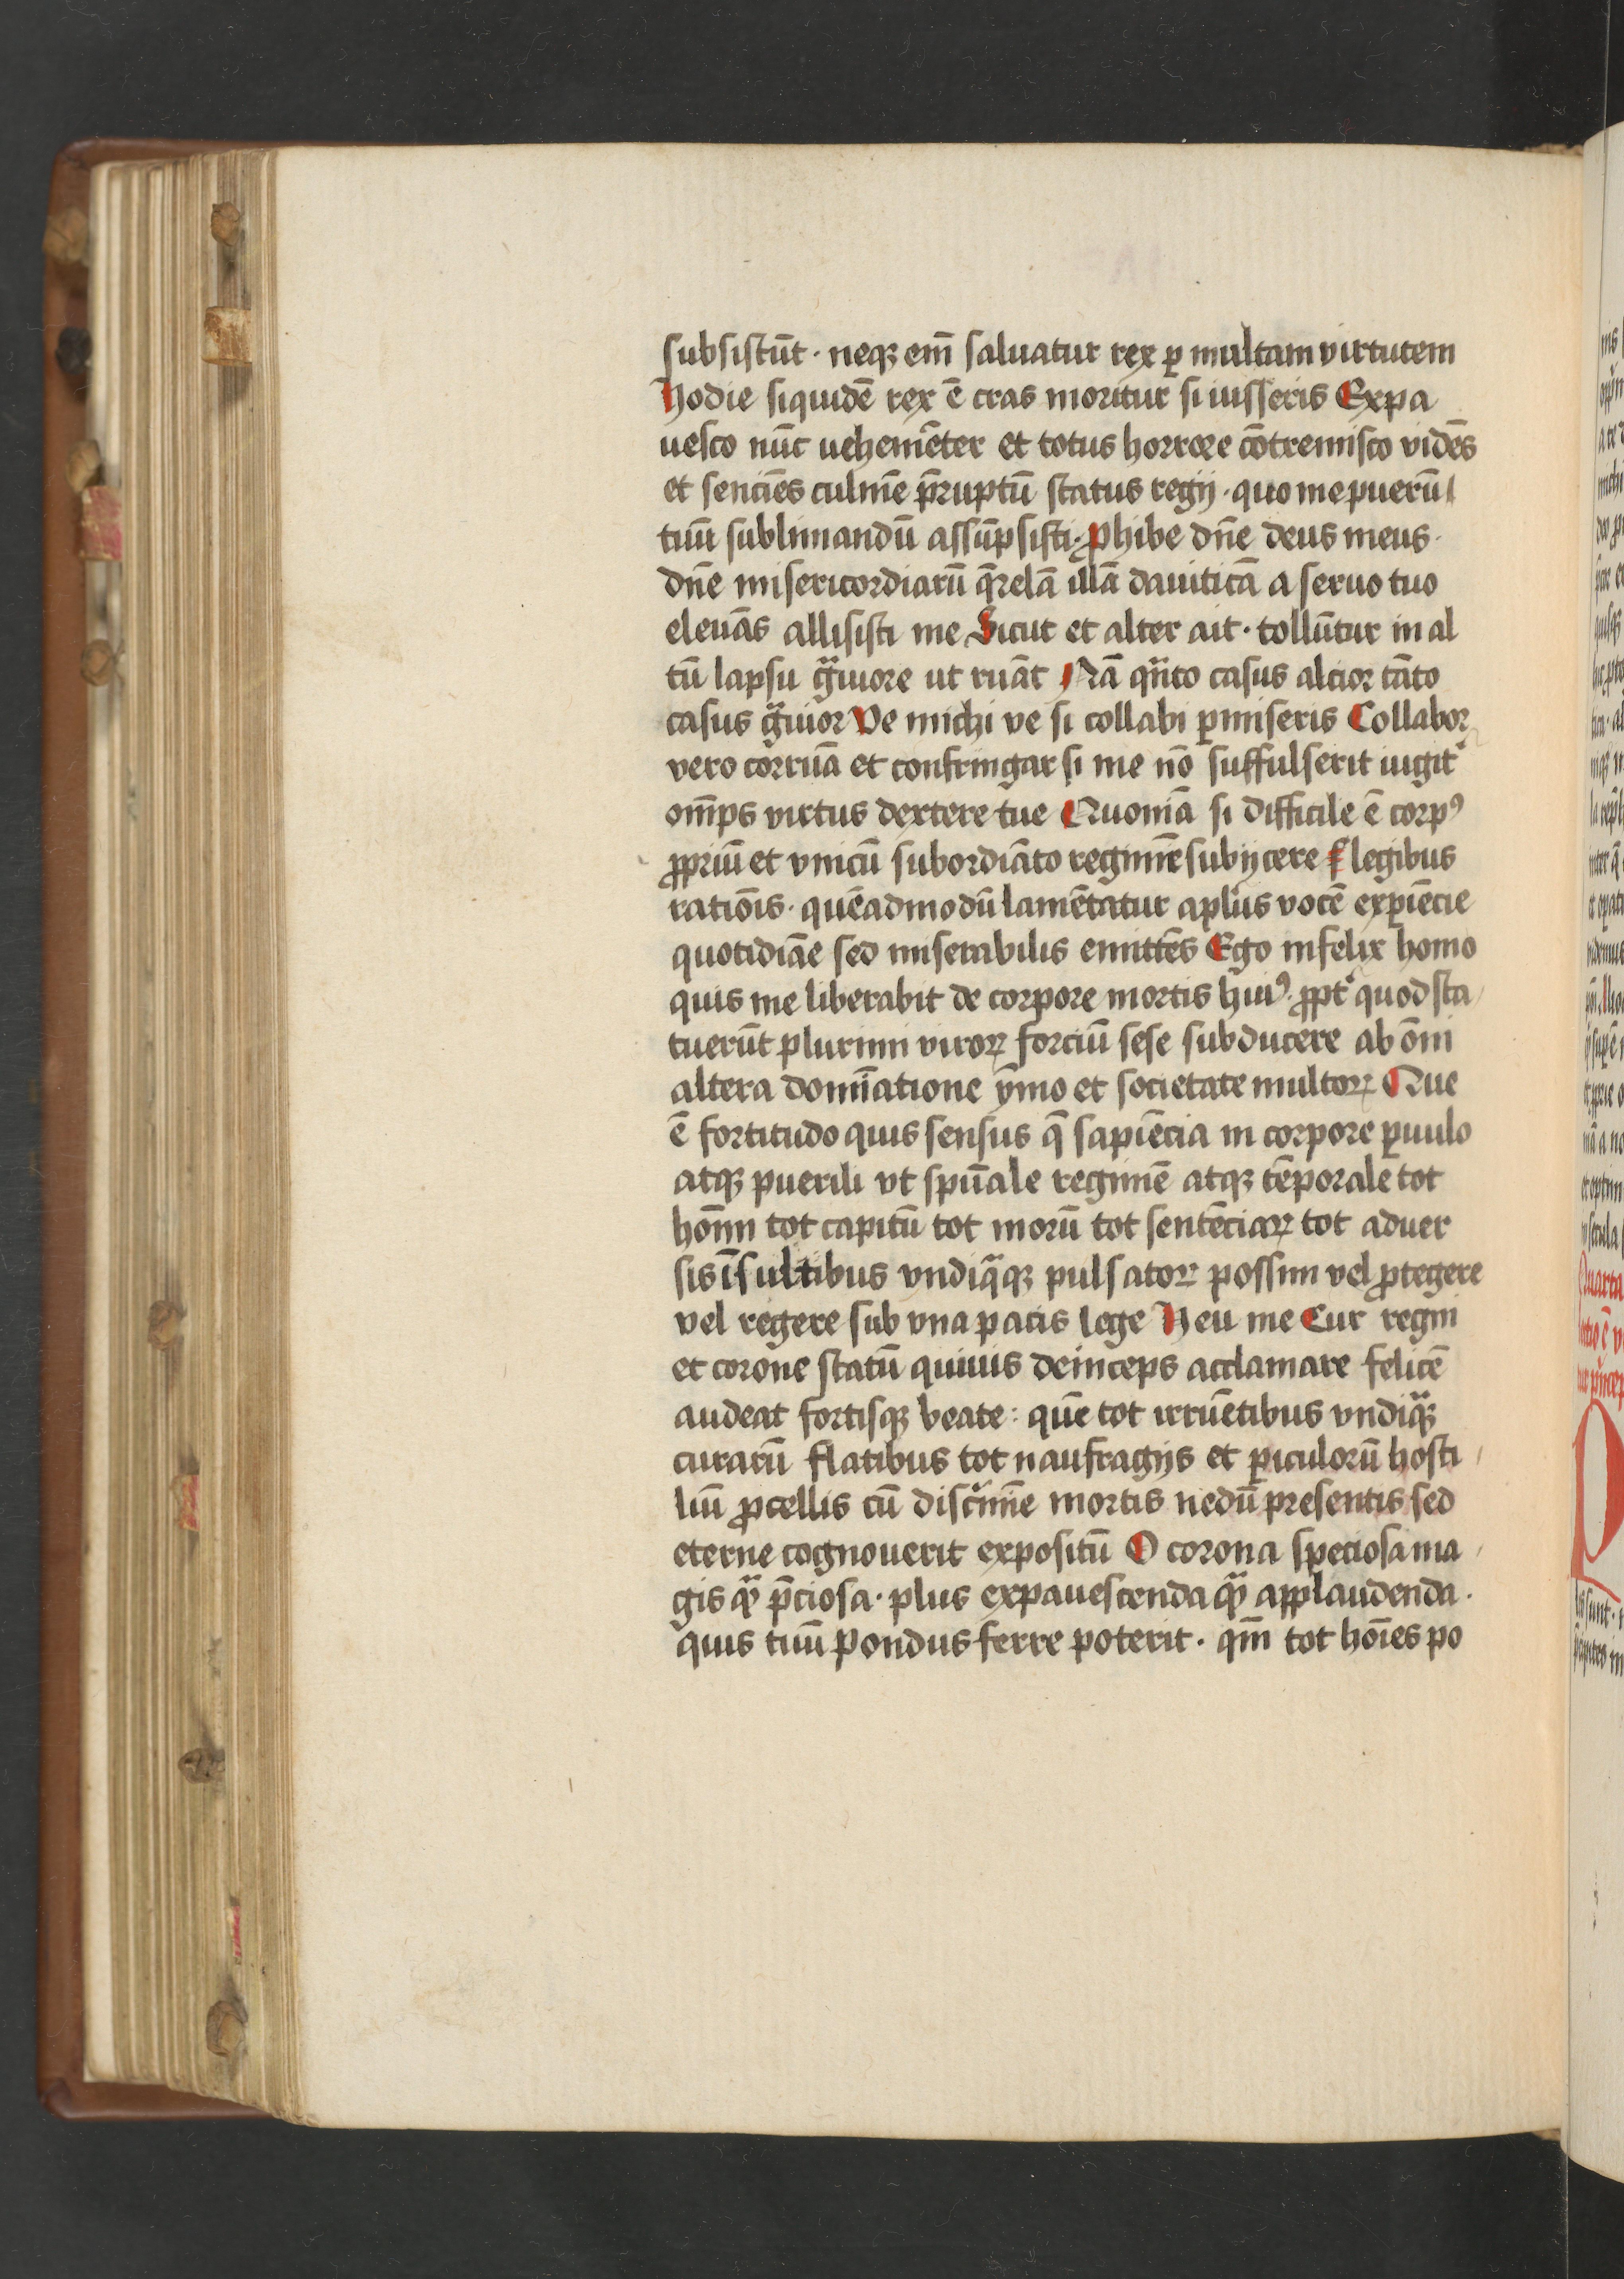 subsistūt · neqꝫ em̄ saluatur rex ꝑ multam virtutem
Hodie siquidē rex ē cras moritur si iusseris Expa
uesco nūc uehemēter et totus horrore cōtremisco vidēs
et senciēs culmē p̄ruptū status regij · quo me puerū
tuū sublimandū assūpsisti · ꝓhibe dn̄e deus meus ·
dn̄e misericordiarū q̄relā illā dauiticā a seruo tuo
eleuās allisisti me Sicut et alter ait · tollūtur in al
tū lapsu gͣuiore ut ruāt Nā qͣn̄to casus alcior tāto
casus gͣuior Ve michi ve si collabi ꝑmiseris Collabor
vero corruā et confringar si me nō suffulserit iugit᷑
om̄ps virtus dextere tue Quoniā si difficile ē corpꝰ
ꝓpriū et vnicū subordiāto regimīe subijcere legibus
ratiōis · quēadmodū lamētatur apl̄us vocē exꝑiēcie
quotidiāe sed miserabilis emittēs Ego infelix homo
quis me liberabit de corpore mortis huiꝰ · ꝓpt᷑ quod sta
tuerūt plurimi viroꝝ forciū sese subducere ab ōni
altera domīatione ymo et societate multoꝝ Que
ē fortitudo quis sensus q̄ sapiēcia in corpore ꝑuulo
atqꝫ puerili vt spūale regimē atqꝫ tēporale tot
hoīm tot capitū tot morū tot sentēciaꝝ tot aduer
sis īsultibus vndiqͣqꝫ pulsatoꝝ possim vel ꝓtegere
vel regere sub vna pacis lege Heu me Cur regni
et corone statū quiuis deinceps acclamare felicē
audeat fortisqꝫ beate : quē tot irruētibus vndiqͣꝫ
curarū flatibus tot naufragijs et ꝑiculorū hosti
liū ꝓcellis cū discͥmīe mortis nedū presentis sed
eterne cognouerit expositū O corona speciosa ma
gis qͣꝫ p̄ciosa · plus expauescenda qͣꝫ applaudenda ·
quis tuū pondus ferre poterit · qm̄ tot hoīes po